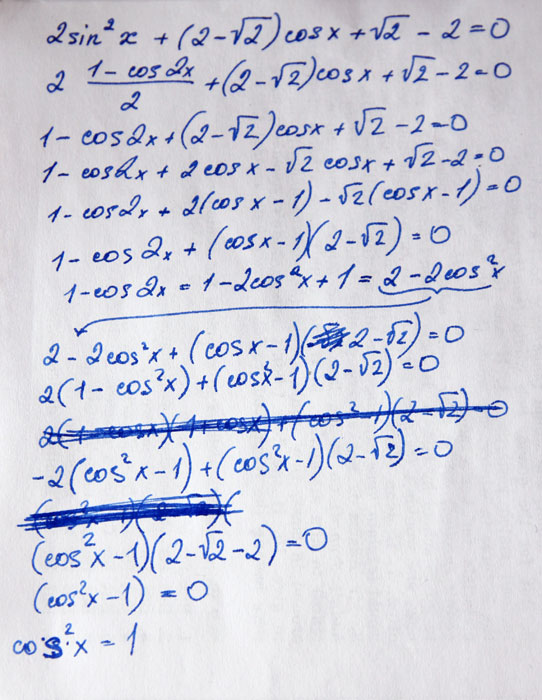 2sin²x + (2-√2)cosx + √2 - 2 = 0
2 (1-cos2x)/2 + (2-√2)cosx + √2 - 2 = 0
1 - cos2x + (2-√2)cosx + √2 - 2 = 0
1 - cos2x + 2cosx - √2 cosx + √2 - 2 = 0
1 - cos2x + 2(cosx - 1) - √2(cosx - 1) = 0
1 - cos2x + (cosx - 1)(2-√2) = 0
1 - cos2x = 1 - 2cos²x + 1 = 2 - 2cos²x
2 - 2cos²x + (cosx - 1)(2-√2) = 0
2(1 - cos²x) + (cosx - 1)(2-√2) = 0
2(1-cosx)(1+cosx) + (cos² - 1)(2-√2) = 0
-2(cos²x - 1) + (cos²x - 1)(2-√2) = 0
(cos²x - 1)(2-√2 - 2) = 0
(cos²x - 1) = 0
cos²x = 1